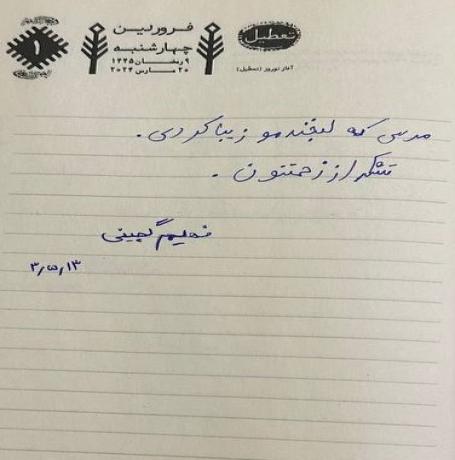 فروردین
چهارشنبه
۹ رمضان ۱۴۴۵
۲۰ مارس ۲۰۲۴
۱
تعطیل
آغاز نوروز (تعطیل)
مرسی که لبخندمو زیبا کردی.
تشکر از زحمتتون.
۳/۵/۱۳